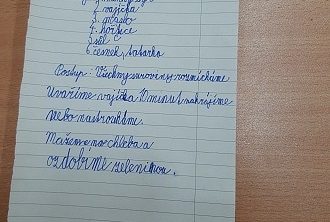 2. vajíčka
3. máslo
4. hořčice
5. sůl
6. česnek, tatarka
Postup: Všechny suroviny rozmícháme
Uvaříme vajíčka 10 minut nakrájíme
nebo nastrouháme.
Mažeme na chleba a
ozdobíme zeleninou.